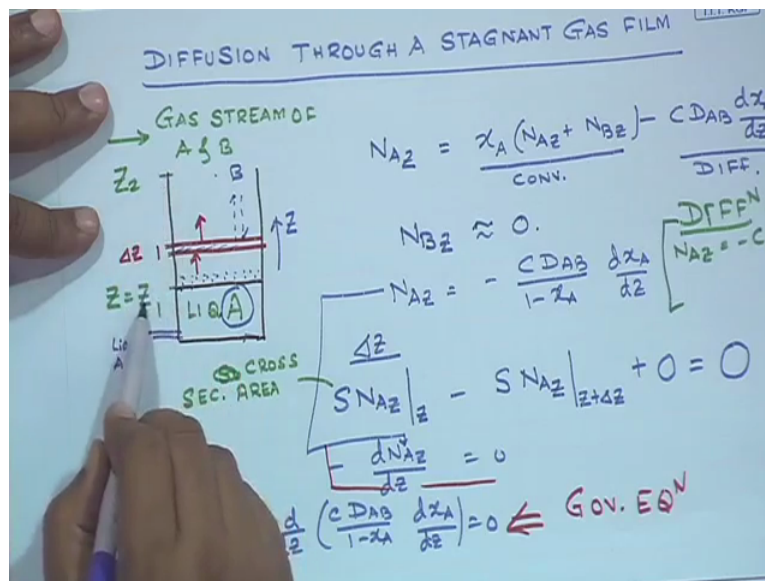 DIFFUSION THROUGH A STAGNANT GAS FILM
GAS STREAM OF
A & B
Z₂
B
Z
ΔZ
Z = Z₁
LIQ A
N_AZ = x_A (N_AZ + N_BZ) - C D_AB dx_A/dz
CONV.
DIFF.
N_BZ ≈ 0.
DIFFᴺ
N_AZ = - C
N_AZ = - C D_AB/1-x_A dx_A/dz
ΔZ
CROSS
SEC. AREA
S N_AZ|_Z - S N_AZ|_Z+ΔZ + 0 = 0
- dN_AZ/dz = 0
d/dz (C D_AB/1-x_A dx_A/dz) = 0 ⇐ GOV. EQᴺ